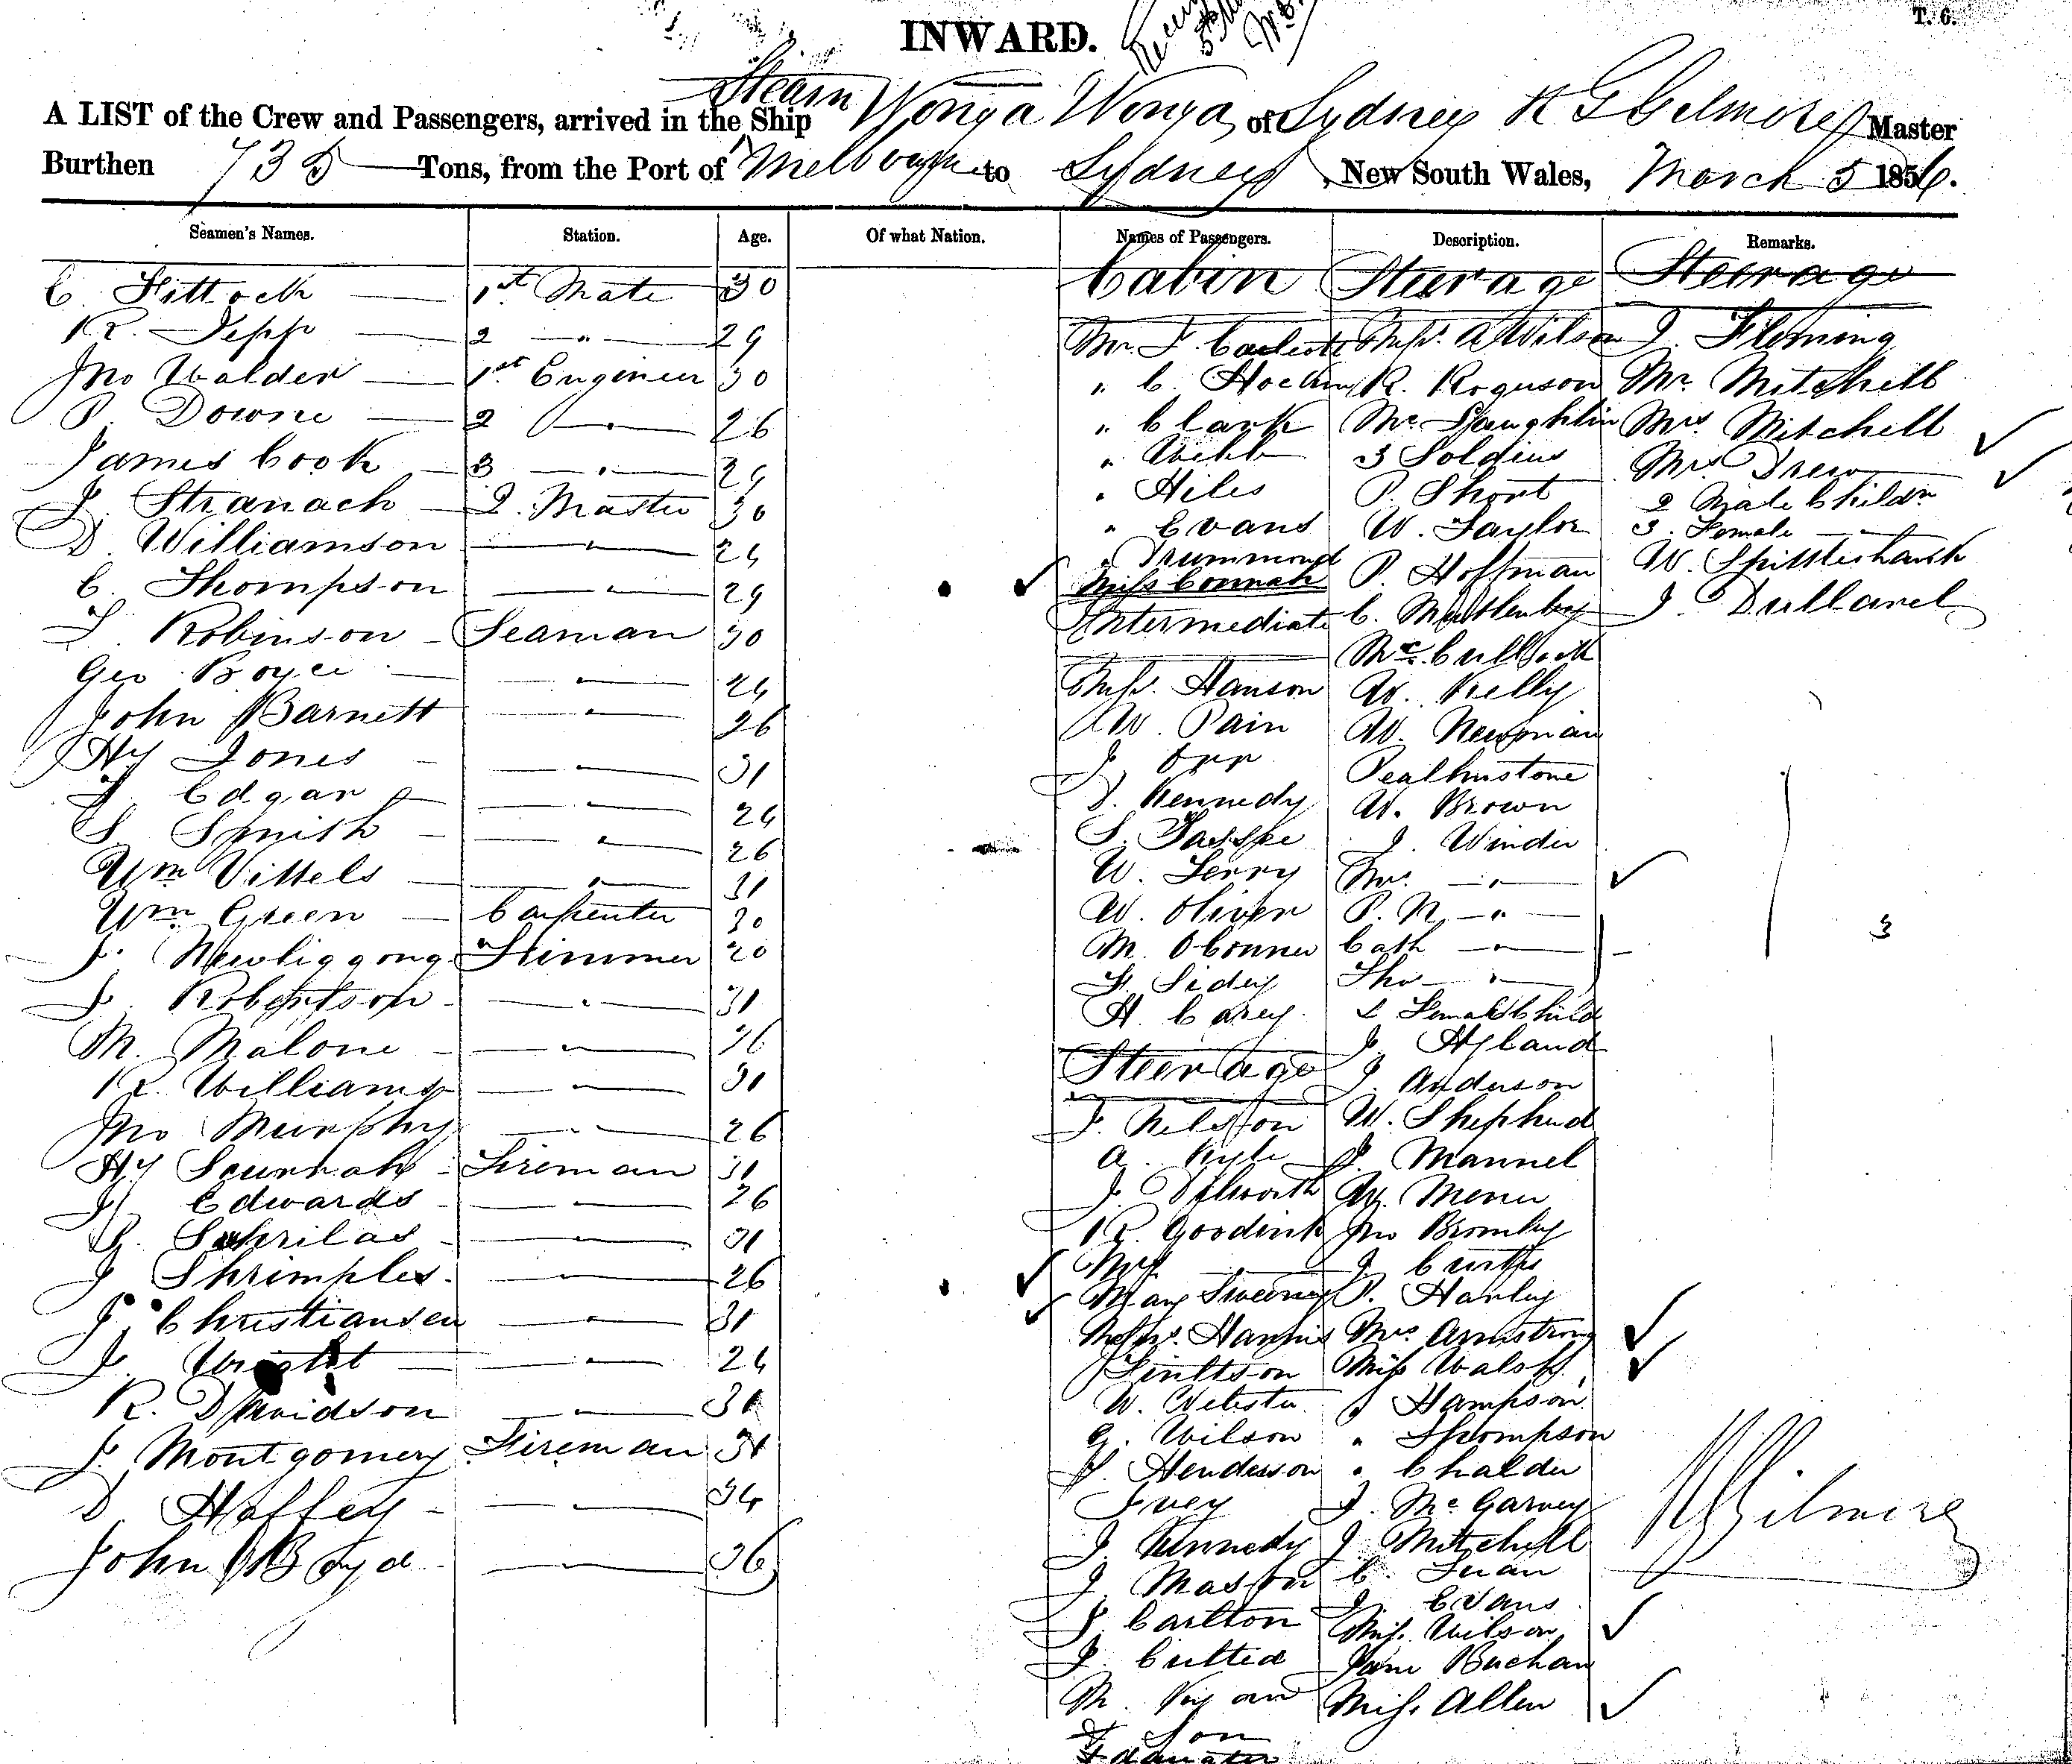 INWARD.
T. 6.
A LIST of the Crew and Passengers, arrived in the Steam Ship Wonga Wonga of Sydney R G Gilmore Master
Burthen 735 Tons, from the Port of Melbourne to Sydney, New South Wales, March 5 1856.
Seamen's Names. Station. Age. Of what Nation. Names of Passengers. Description. Remarks.
C. Fittock 1st Mate 30
R. Jepp 2 " 29
Jno Walder 1st Engineer 30
P. Downe 2 " 26
James Cook 3 " 24
J. Stranach Q. Master 30
D. Williamson " 24
C. Thompson " 29
T. Robinson Seaman 30
Geo Boyce " 24
John Barnett " 26
Hy Jones " 31
J. Edgar " 24
S. Smith " 26
Wm Vittels " 31
Wm Green Carpenter 30
J. Newbiggong Trimmer 20
J. Robertson " 31
M. Malone " 26
R. Williams " 31
Jno Murphy " 26
Hy Scurrah Fireman 31
J. Edwards " 26
" 31
J Shrimples " 26
J. Christiansen " 31
J. " 24
R. Davidson "
J. Montgomery Fireman 31
D Haffey " 34
John Boyd " 36
Cabin
Mr. J.
" C.
" Clark
" Webb
" Hiles
" Evans
" Drummond
Miss Connah
Intermediate
Miss. Hanson
W. Pain
J. Orr
J. Kennedy
S.
W. Terry
W. Oliver
M. OConner
F. Sidey
H. Carey
Steerage
J. Nelson
A. Kyle
J.
R.
Mrs "
Mary Sweeney
Harris
W. Webster
G. Wilson
J. Henderson
Ivey
J. Kennedy
J. Mason
J. Carlton
J.
M.
& Son
& daughter
Steerage
Miss. A Wilson
R.
McLaughlin
3 Soldiers
P. Short
W. Taylor
P. Hoffman
C.
McCulloch
W. Kelly
W. Newman
W. Brown
J. Winder
Mrs. "
P. N. "
Cath "
Tho "
2 Female Child
J. Hyland
J. Anderson
W. Shepherd
J. Mannel
W.
Jno Bromley
J
P. Hanley
Mrs Armstrong
Miss Walsh
" Hampson
" Thompson
" Chalder
J. McGarvey
J. Mitchell
C.
J. Evans
Miss. Wilson
Jane Buchan
Miss. Allen
Steerage
J. Fleming
Mr. Mitchell
Mrs Mitchell
Mrs Drew
2 Male Childn
3. Female "
W.
J.
3
R G Gilmore